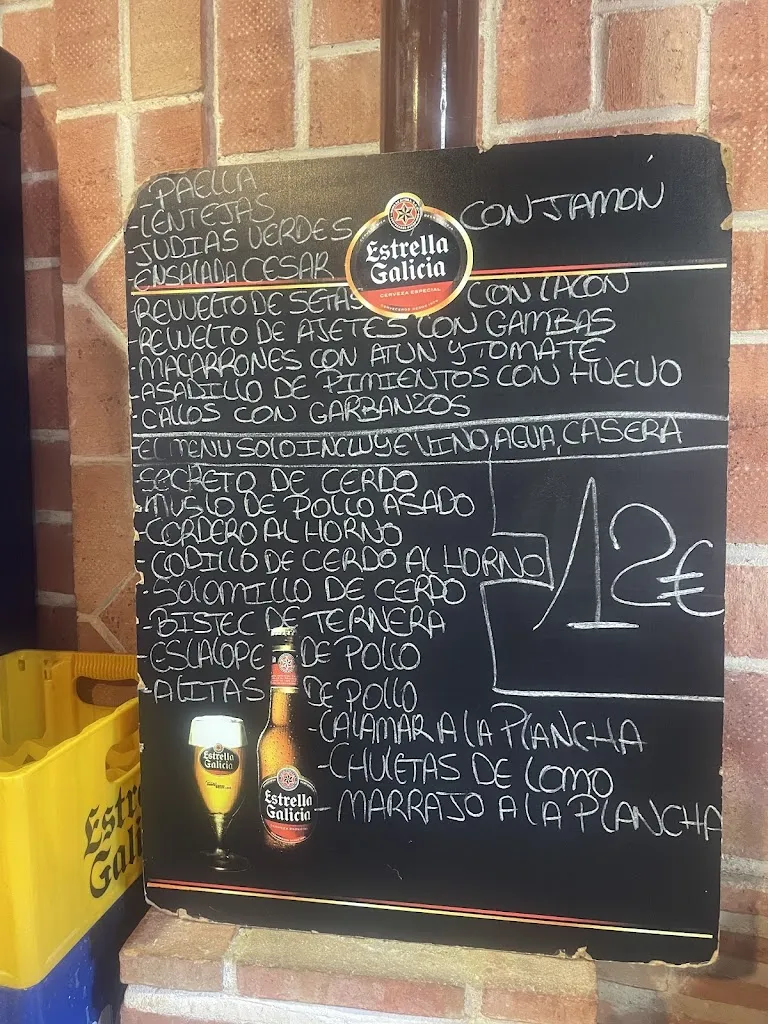 -PAELLA
-LENTEJAS
-JUDIAS VERDES CON JAMON
-ENSALADA CESAR
Estrella
Galicia
CERVEZA ESPECIAL
-REVUELTO DE SETAS CON LACON
-REVUELTO DE AJETES CON GAMBAS
-MACARRONES CON ATUN Y TOMATE
-ASADILLO DE PIMIENTOS CON HUEVO
-CALLOS CON GARBANZOS
-EL MENU SOLO INCLUYE VINO, AGUA, CASERA
-SECRETO DE CERDO
-MUSLO DE POLLO ASADO
-CORDERO AL HORNO
-CODILLO DE CERDO AL HORNO
12€
-SOLOMILLO DE CERDO
-BISTEC DE TERNERA
-ESCALOPE DE POLLO
-ALITAS DE POLLO
-CALAMAR A LA PLANCHA
-CHULETAS DE LOMO
-MARRAJO A LA PLANCHA
Estrella
Galicia
Estrella
Galicia
Estr
Gali